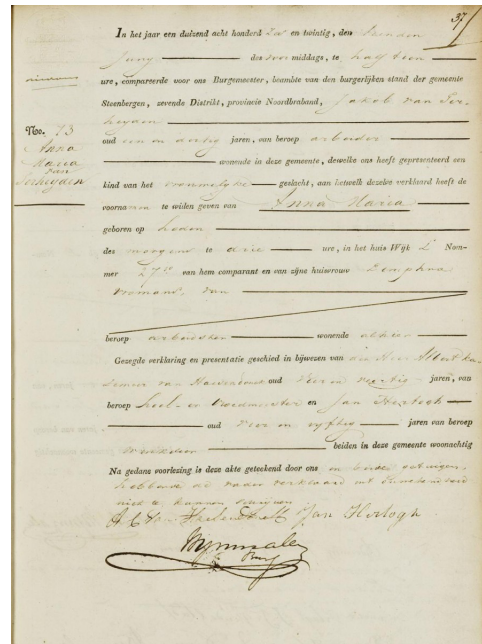 37
In het jaar een duizend acht honderd Zes en twintig, den
Juny des voor middags, te half tien
ure, compareerde voor ons Burgemeester, beambte van den burgerlijken stand der gemeente
Steenbergen, zevende Distrikt, provincie Noordbraband, Jakob van Ter-
heyden
oud een en dertig jaren, van beroep arbeider
wonende in deze gemeente, dewelke ons heeft gepresenteerd een
kind van het vrouwelyke geslacht, aan hetwelk dezelve verklaard heeft de
voornamen te willen geven van Anna Maria
geboren op heden
des morgens te drie ure, in het huis Wijk L Num-
mer 27 van hem comparant en van zijne huisvrouw Dimphna
van
beroep arbeidster wonende alhier
Gezegde verklaring en presentatie geschied in bijwezen van die Heer Albert
van oud Vier en veertig jaren, van
beroep heel- en vroedmeester en Jan Hertogh
oud vier en vyftig jaren van beroep
beiden in deze gemeente woonachtig
Na gedane voorlezing is deze akte geteekend door ons en beide getuigen
hebbende de vader verklaard uit
niet te kunnen schryven
Jan Hertogh
Noo. 73
Anna
Maria
van
Terheyden